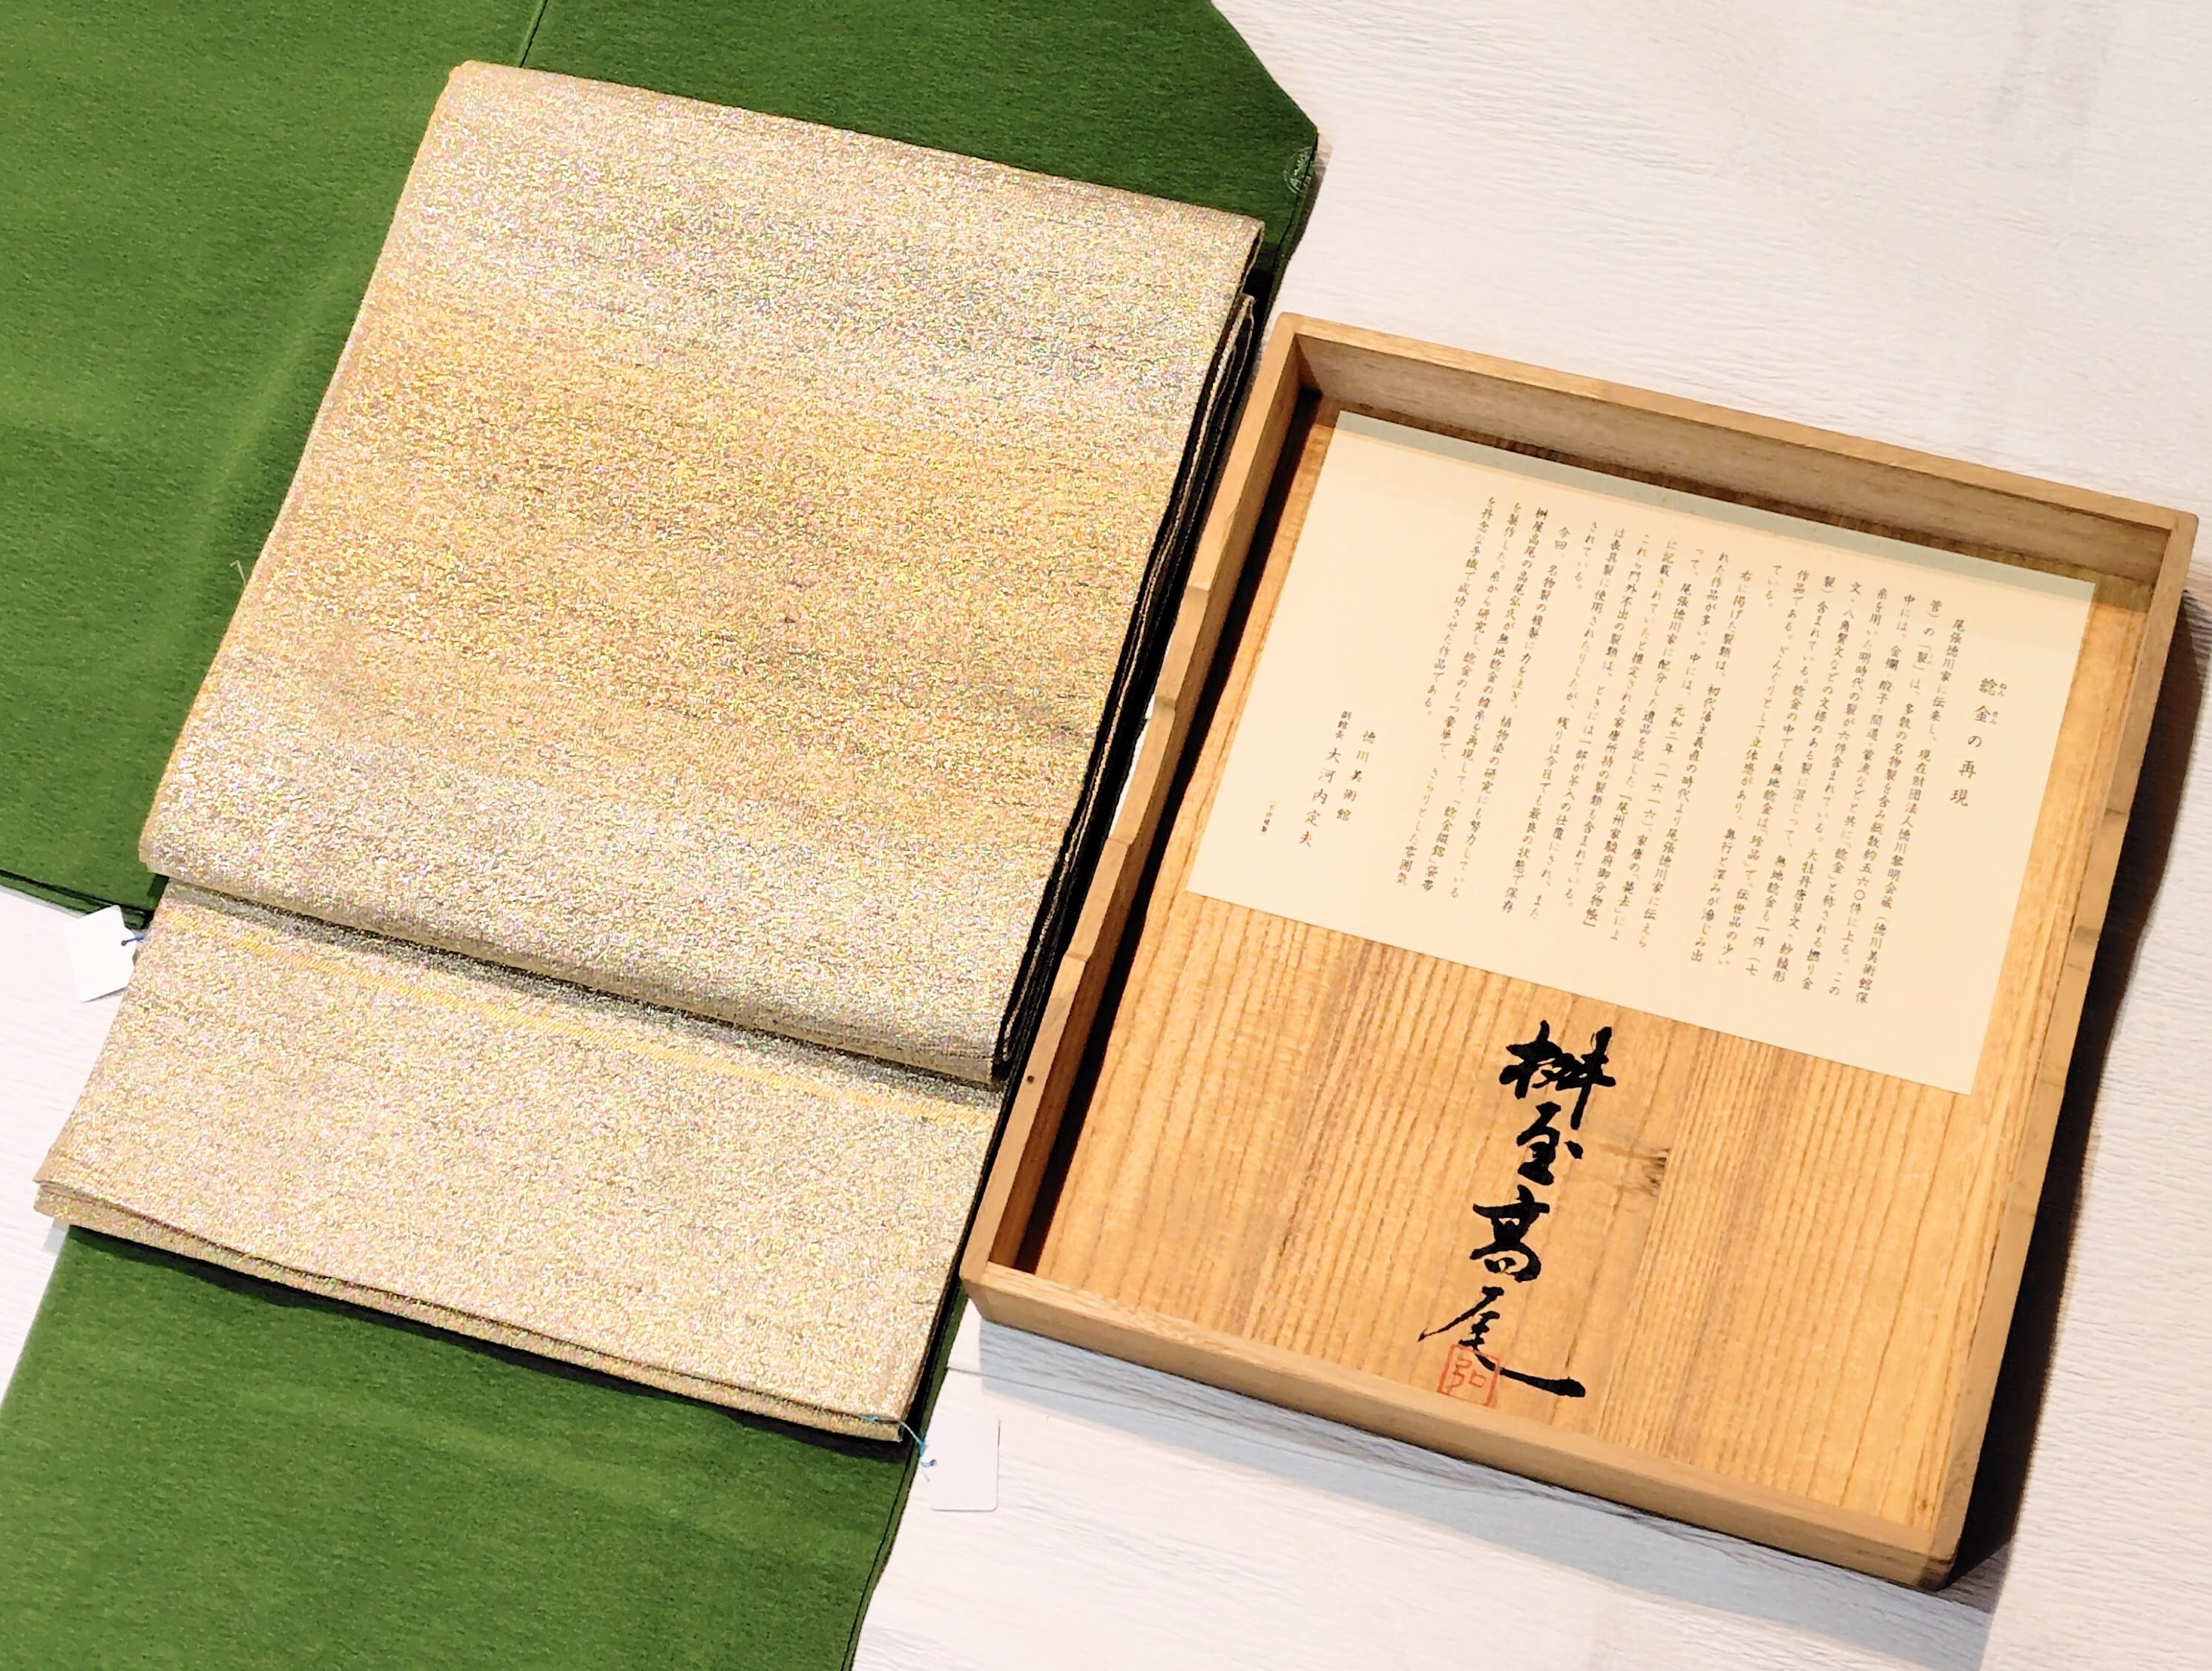 捻金の再現
尾張徳川家に伝来し、現在財団法人徳川黎明会蔵(徳川美術館保
管)の「裂」は、多数の名物裂を含み総数約五六〇件に上る。この
中には、金襴・緞子・間道・蒙流などと共に「捻金」と称される撚り金
糸を用いた明時代の裂が六件含まれている。大牡丹唐草文、紗綾形
文、八角繋文などの文様のある裂に混じって、無地捻金も一件(七
裂)含まれている。捻金の中でも無地捻金は、珍品で、伝世品の少い
作品である。ざんぐりとして立体感があり、奥行と深みが滲じみ出
ている。
右に掲げた裂類は、初代藩主義直の時代より尾張徳川家に伝えら
れた作品が多い。中には、元和二年(一六一六)、家康の「薨去」によ
って、尾張徳川家に配分した遺品を記した「尾州家駿府御分物帳」
に記載されていたと推定される家康所持の裂類も含まれている。
これら門外不出の裂類は、ときには一部が茶入の仕覆にされ、また
は表具裂に使用されたりしたが、残りは今日でも最良の状態で保存
されている。
今回、名物裂の複製に力を注ぎ、植物染の研究にも努力している
桝屋高尾の高尾弘氏が無地捻金の緯糸を再現して、「捻金綴錦」袋帯
を製作した。糸から研究し、捻金のもつ豪華で、さらりとした雰囲気
を丹念な手織で成功させた作品である。
徳川美術館
副館長 大河内定夫
桝屋高尾
弘